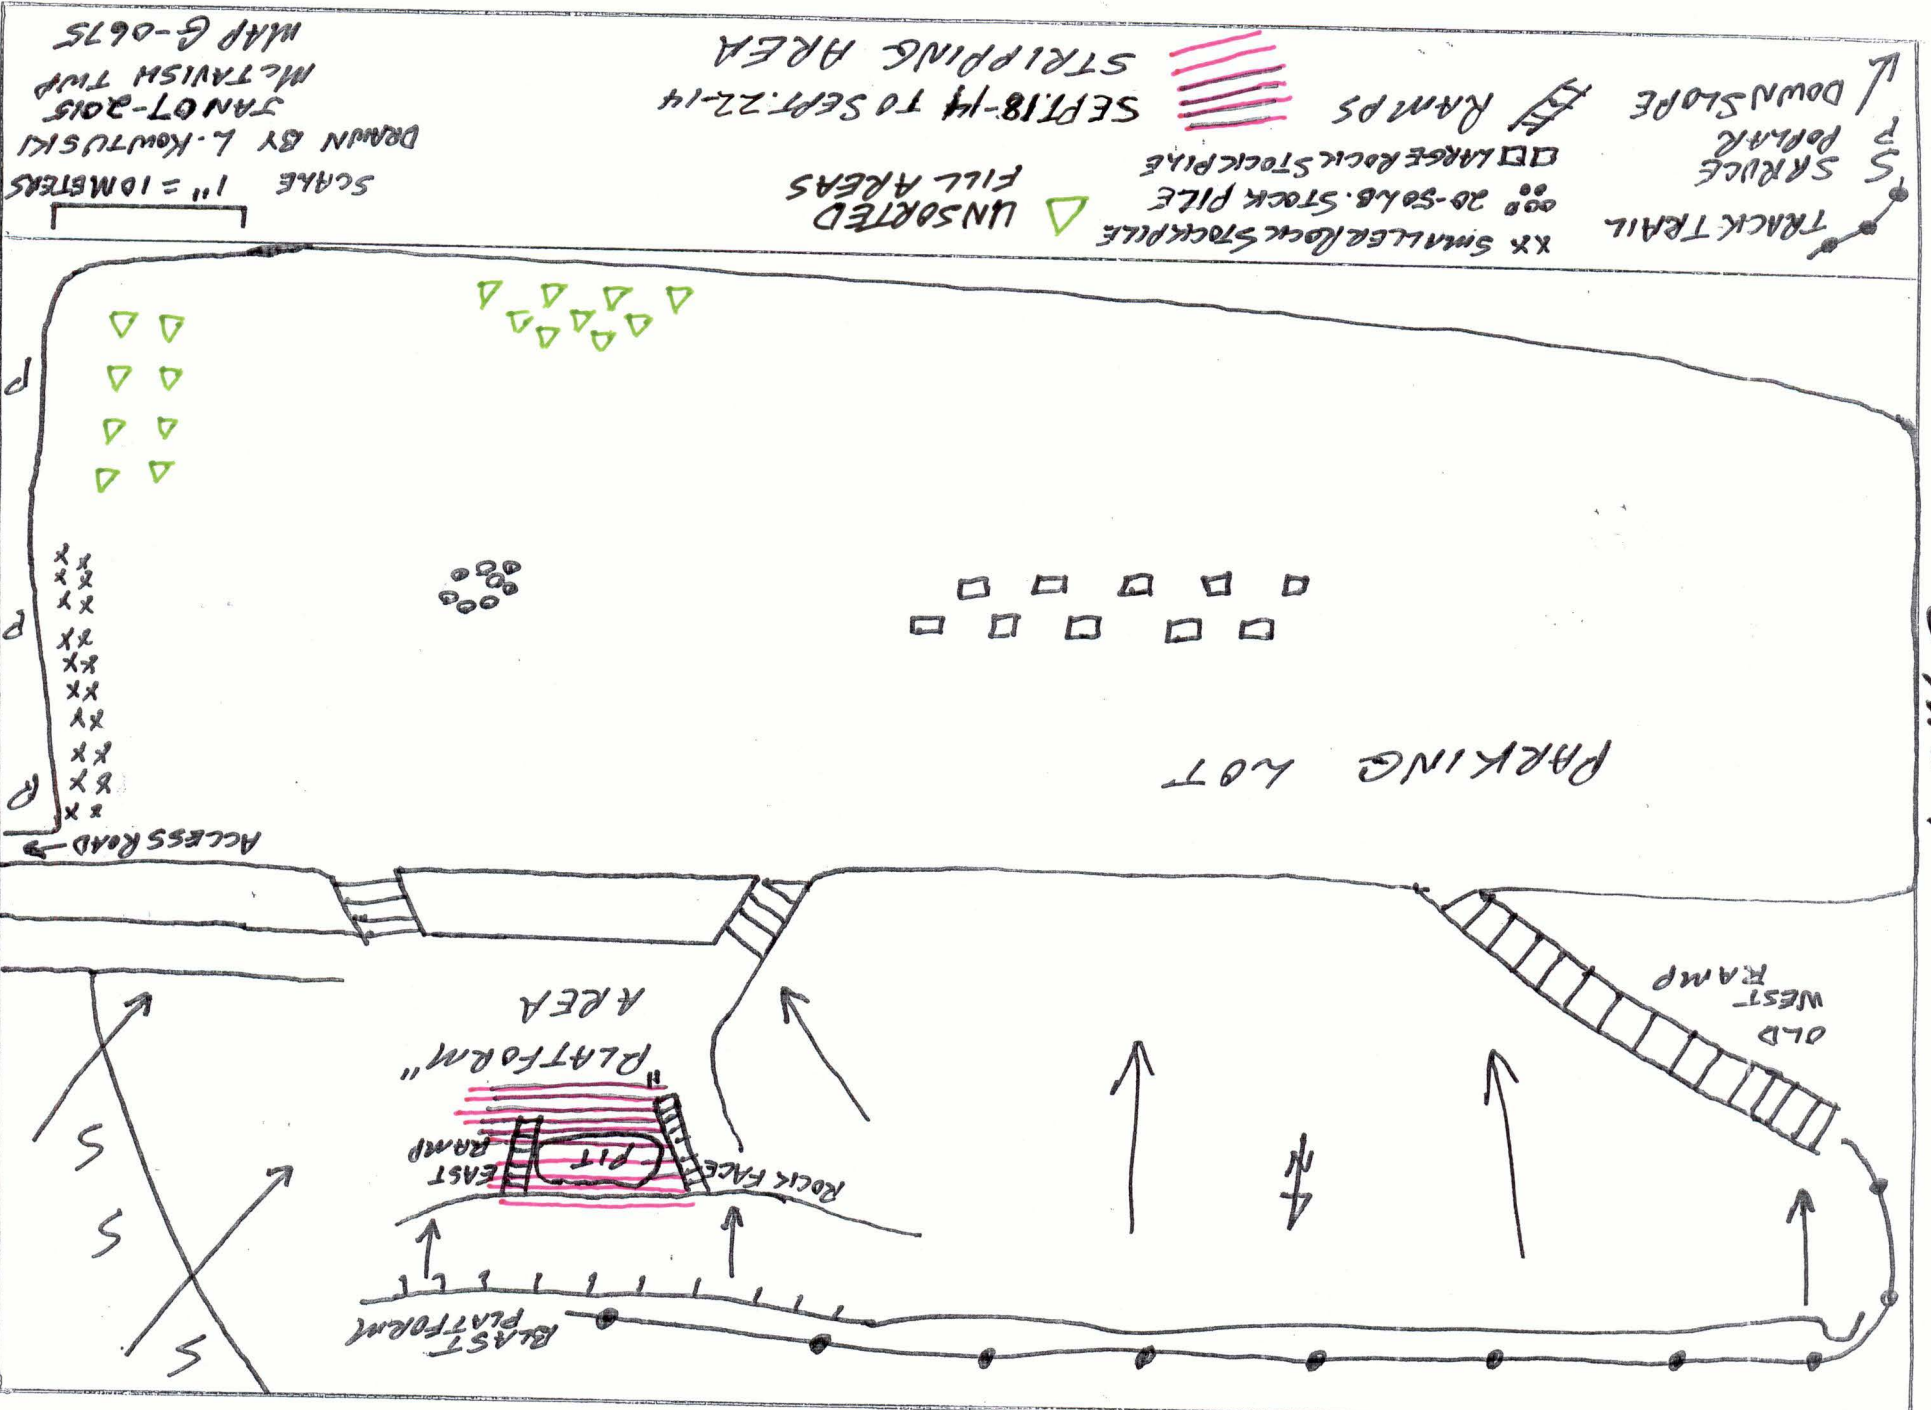 BLAST
PLATFORM
S
S
S
N
ROCK FACE
PIT
EAST
RAMP
OLD
WEST
RAMP
"PLATFORM"
AREA
ACCESS ROAD
PARKING LOT
P
P
P
TRACK TRAIL
S SPRUCE
P POPLAR
DOWNSLOPE
XX SMALLER ROCK STOCKPILE
20-50LB. STOCK PILE
LARGE ROCK STOCKPILE
RAMPS
UNSORTED
FILL AREAS
SEPT.18-14 TO SEPT.22-14
STRIPPING AREA
SCALE 1" = 10 METERS
DRAWN BY L. KOWTUSKI
JAN 07-2015
McTAVISH TWP
MAP G-0675